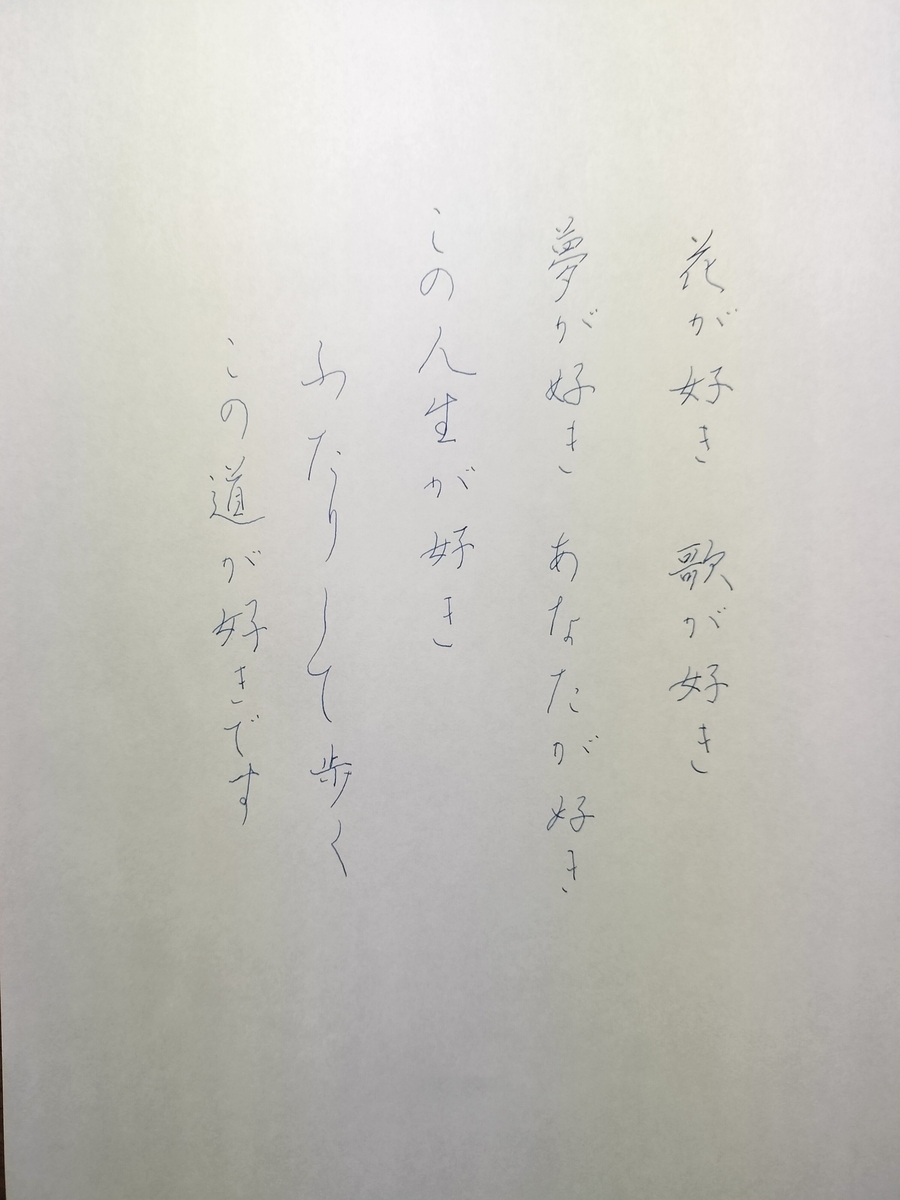 花が好き　歌が好き
夢が好き　あなたが好き
この人生が好き
ふたりして歩く
この道が好きです